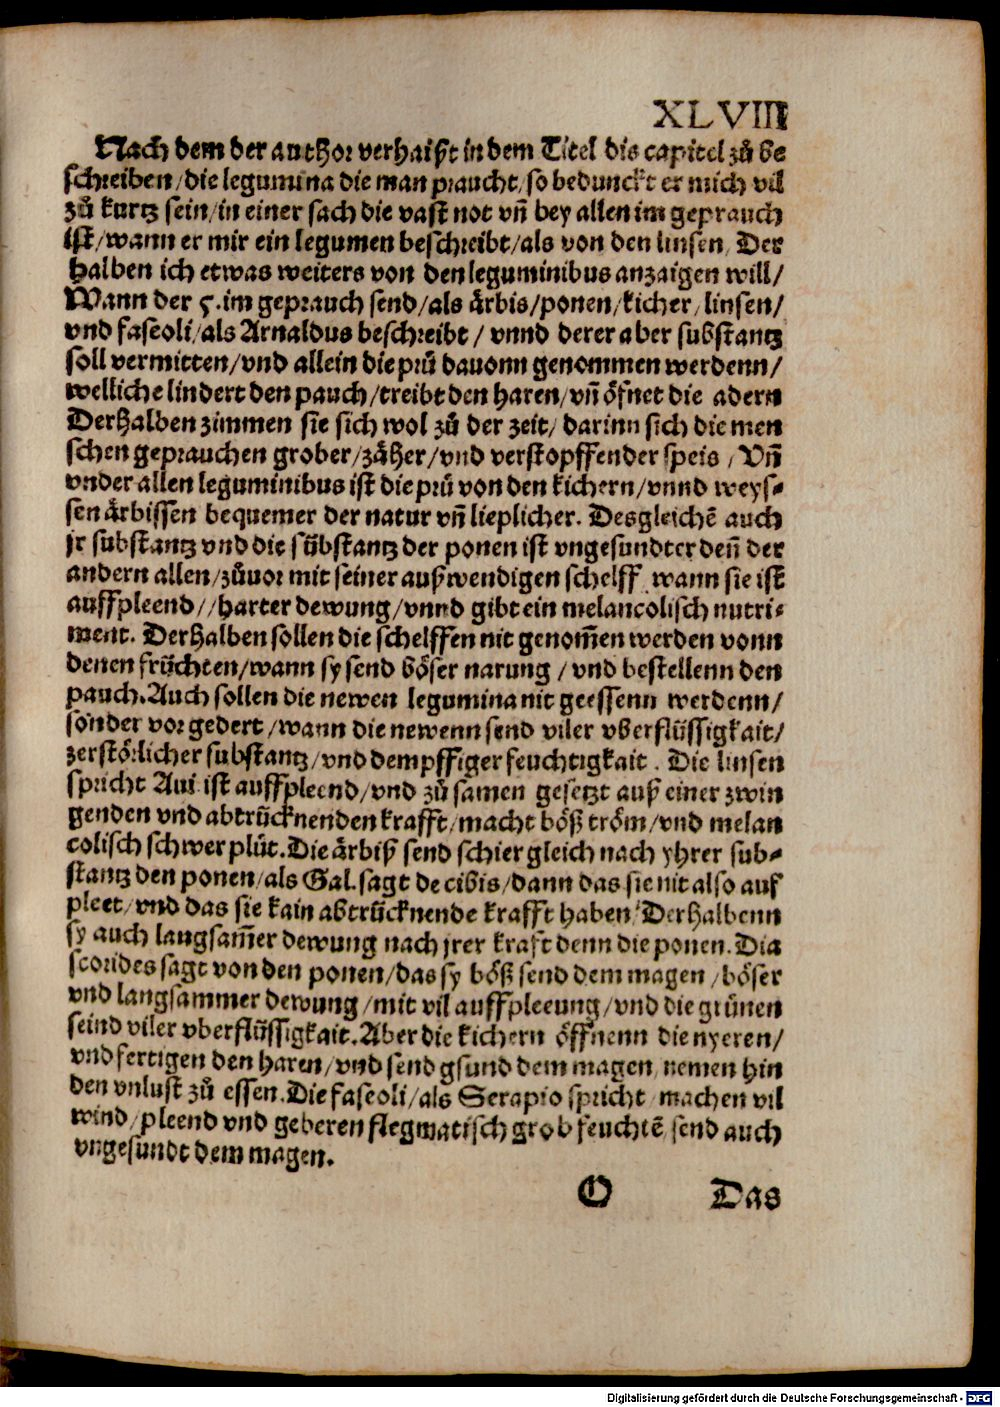 XLVIII
Nach dem der author verhaißt in dem Titel dis capitel zů be
schreiben/die legumina die man praucht/so bedunckt er mich vil
zů kurtz sein/in einer sach die vast not vñ bey allen im geprauch
ist/wann er mir ein legumen beschreibt/als von den linsen/Der
halben ich etwas weiters von den leguminibus anzaigen will/
Wann der 5.im geprauch send/als ärbis/ponen/kicher/linsen/
vnd faseoli/als Arnaldus beschreibt/ vnnd derer aber substantz
soll vermitten/vnd allein die prů dauonn genommen werdenn/
welliche lindert den pauch/treibt den haren/vñ öfnet die adern
Derhalben zimmen sie sich wol zů der zeit/ darinn sich die men
schen geprauchen grober/zäher/vnd verstopffender speis/Vñ
vnder allen leguminibus ist die prů von den kichern/vnnd weys-
sen ärbissen bequemer der natur vñ lieplicher. Desgleichẽ auch
jr substantz vnd die sůbstantz der ponen ist vngesundter deñ der
andern allen/zůuor mit seiner außwendigen schelff wann sie ist
auffpleend//harter dewung/vnnd gibt ein melancolisch nutri-
ment. Derhalben sollen die schelffen nit genom̃en werden vonn
denen früchten/wann sy send böser narung/vnd bestellenn den
pauch.Auch sollen die newen legumina nit geessenn werdenn/
sonder vor gedert/wann die newenn send viler vberflüssigkait/
zerstörlicher substantz/vnd dempffiger feuchtigkait. Die linsen
spricht Aui ist auffpleend/vnd zů samen gesetzt auß einer zwin
genden vnd abtrücknenden krafft/macht böß tröm/vnd melan
colisch schwer plůt.Die ärbiß send schier gleich nach yhrer sub-
stantz den ponen/als Gal.sagt de cibis/dann das sie nit also auf
pleet/vnd das sie kain abtrücknende krafft haben/Derhalbenn
sy auch langsam̃er dewung nach jrer kraft denn die ponen.Dia
scorides sagt von den ponen/das sy böß send dem magen/böser
vnd langsammer dewung/mit vil auffpleeung/vnd die grünen
seind viler vberflüssigkait.Aber die kichern öffnenn die nyeren/
vnd fertigen den haren/vnd send gsund dem magen/nemen hin
den vnlust zů essen.Die faseoli/als Serapio spricht/machen vil
wind/pleend vnd geberen flegmatisch grob feuchtẽ/send auch
vngesundt dem magen.
O Das
Digitalisierung gefördert durch die Deutsche Forschungsgemeinschaft - DFG